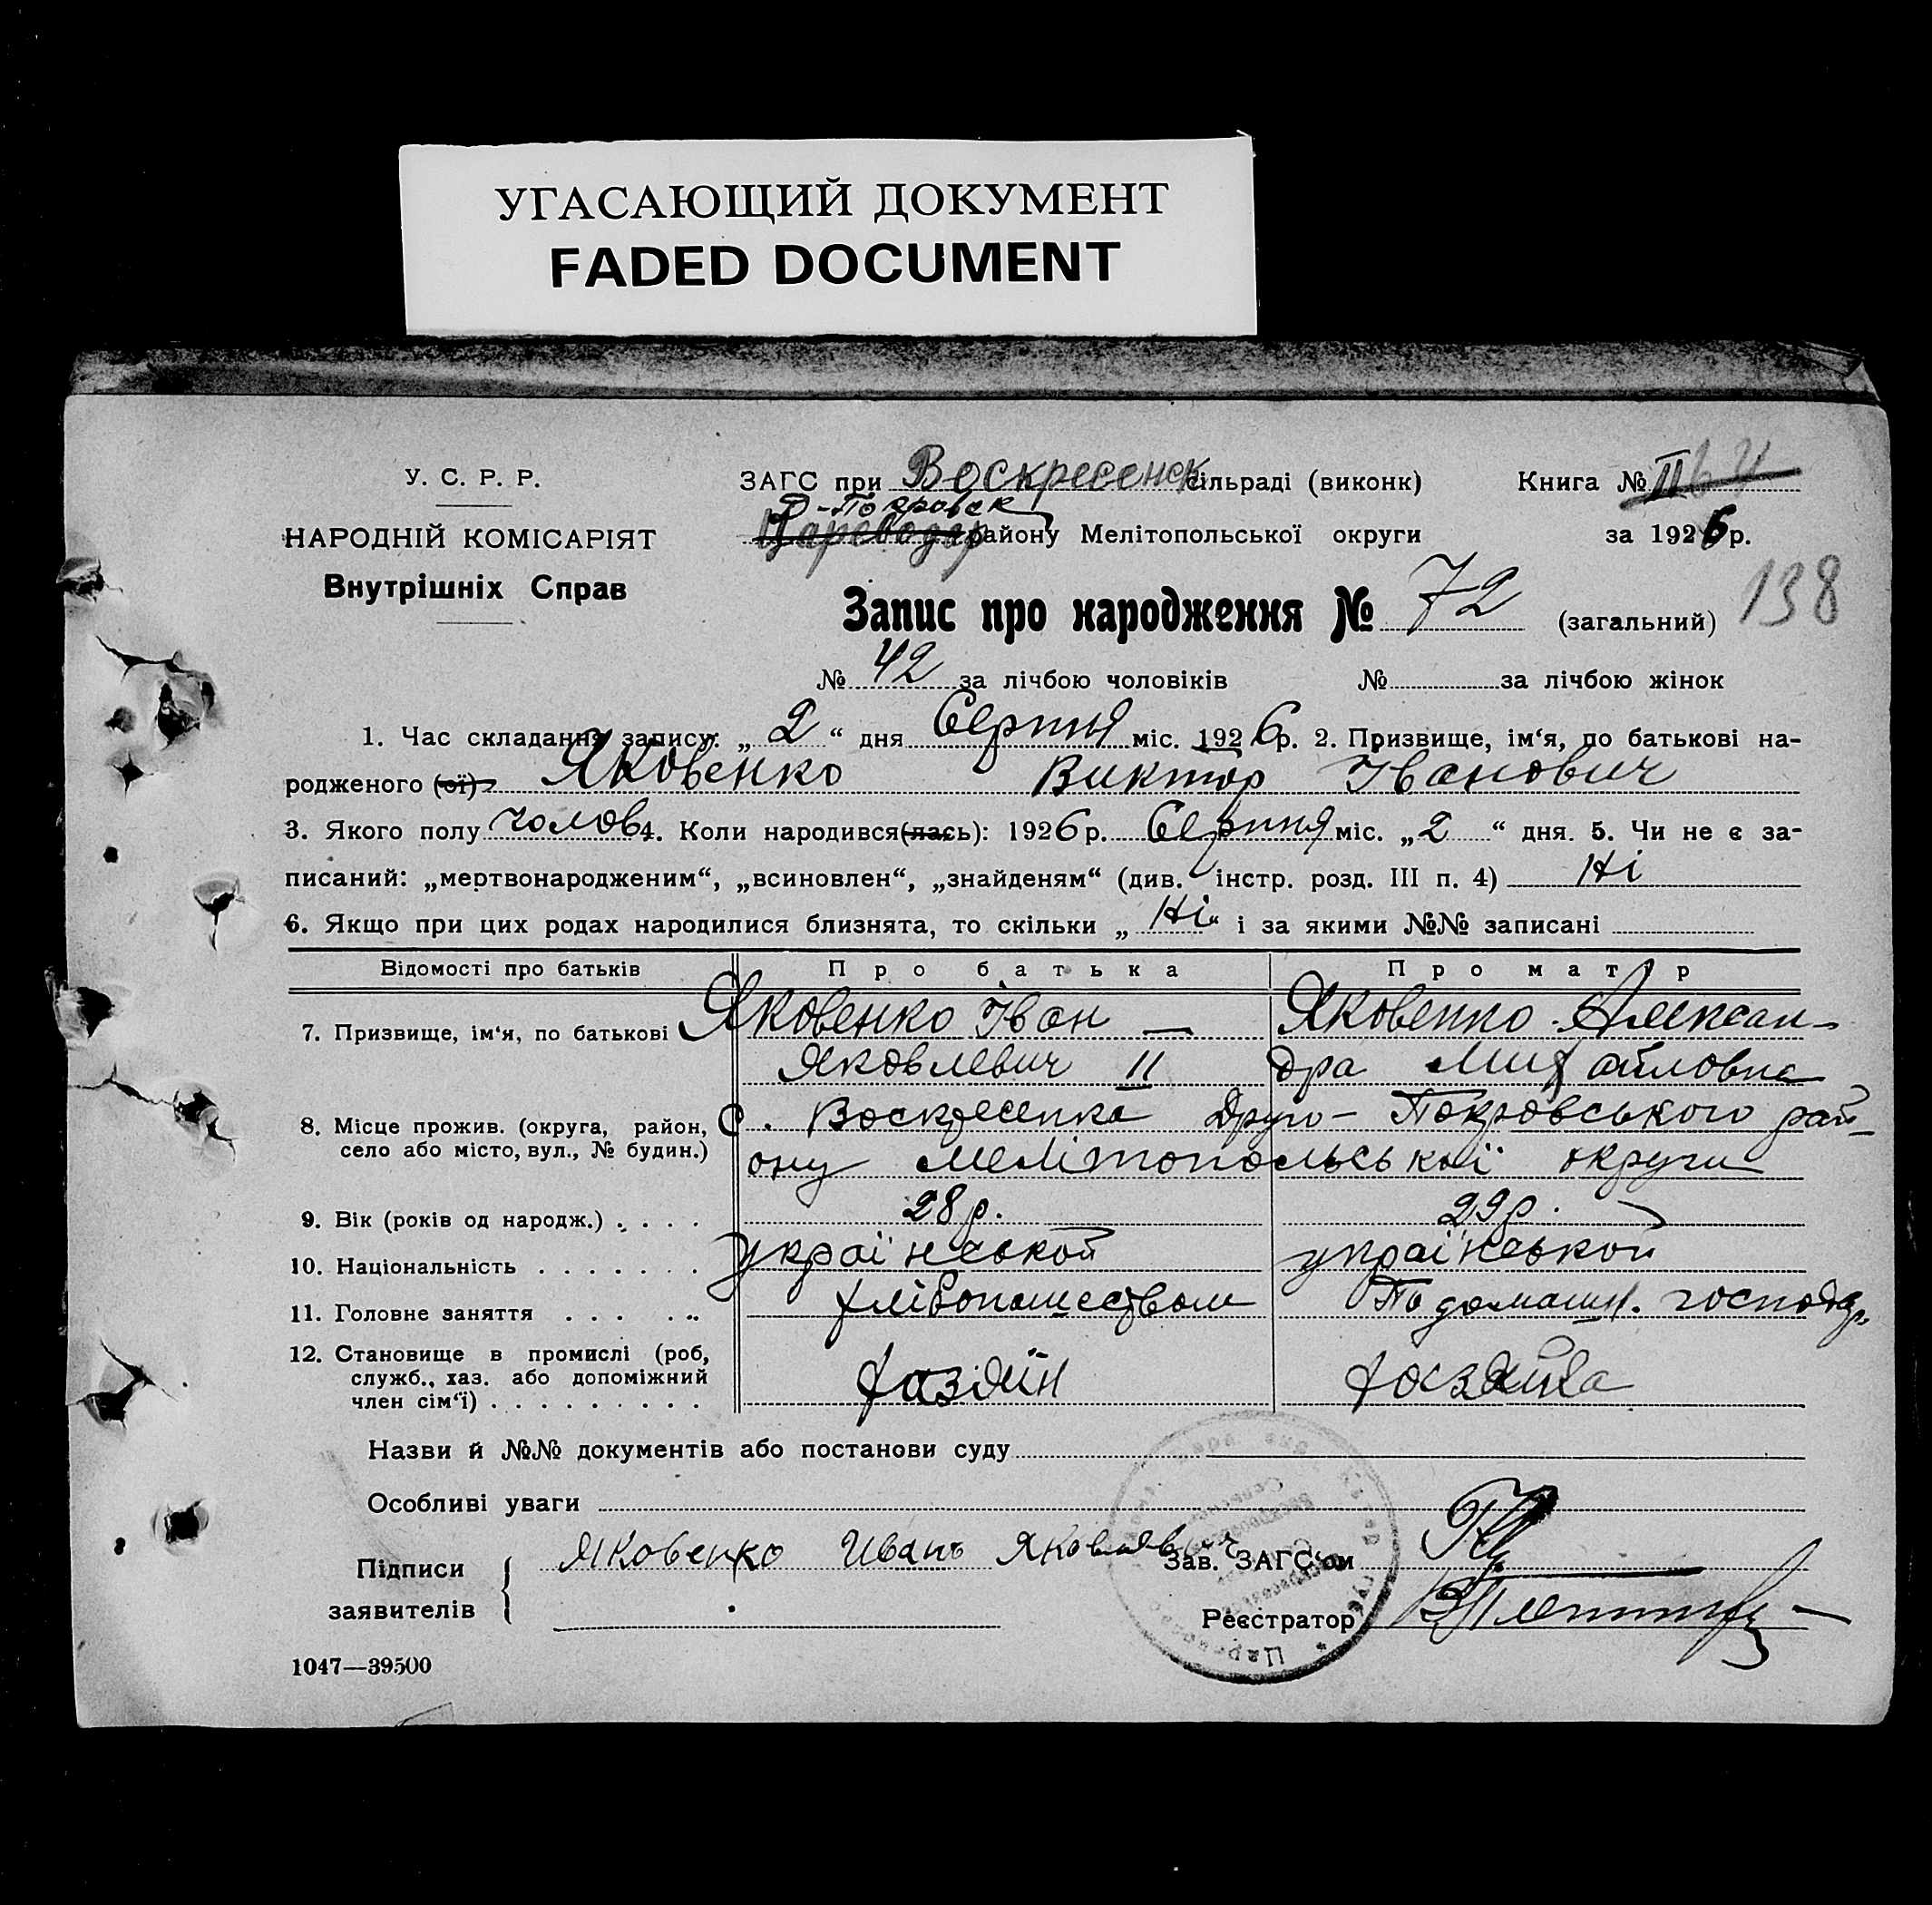 УГАСАЮЩИЙ ДОКУМЕНТ
FADED DOCUMENT
У. С. Р. Р.
НАРОДНІЙ КОМІСАРІЯТ
Внутрішніх Справ
ЗАГС при Воскресенск сільраді (виконк)
Книга № II
Д-Покровск
Цареводар району Мелітопольської округи
за 1926 р.
Запис про народження № 72 (загальний)
138
№ 42 за лічбою чоловіків № за лічбою жінок
1. Час складання запису: „ 2 “ дня Серпня міс. 1926 р. 2. Призвище, ім‘я, по батькові на-
родженого (ої) Яковенко Виктор Іванович
3. Якого полу чолов. 4. Коли народився(лась): 1926 р. Серпня міс. „ 2 “ дня. 5. Чи не є за-
писаний: „мертвонародженим“, „всиновлен“, „знайденям“ (див. інстр. розд. III п. 4) Ні
6. Якщо при цих родах народилися близнята, то скільки „ Ні “ і за якими №№ записані
Відомості про батьків Про батька Про матір
7. Призвище, ім‘я, по батькові Яковенко Іван — Яковенко Алексан-
Яковлевич II дра Михайловна
8. Місце прожив. (округа, район, с. Воскресенка Друго-Покровського рай-
село або місто, вул., № будин.) ону Мелітопольської округи
9. Вік (років од народж.) . . . . 28 р. 29 р.
10. Національність . . . . . . . української української
11. Головне заняття . . . . .. хлібопашеством По домашн. господр.
12. Становище в промислі (роб,
служб., хаз. або допоміжний хазяїн хазяйка
член сім‘ї) . . . . . . . . .
Назви й №№ документів або постанови суду
Особливі уваги
Підписи Яковенко Иванъ Яковлевич Зав. ЗАГС‘ом
заявителів Реєстратор
1047—39500